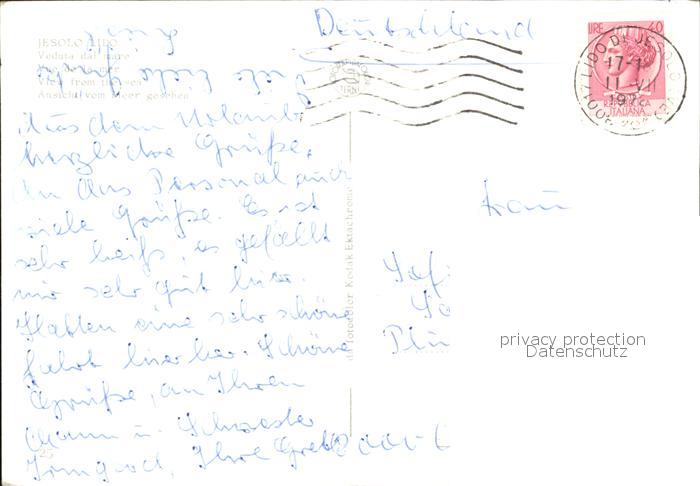 Deutschland
JESOLO LIDO
Veduta dal mare
View from the sea
Ansicht vom Meer gesehen
LIRE 40
REPUBBLICA
ITALIANA
LIDO DI JESOLO
17-1
11 VII
Aus dem Urlaub
herzliche Grüße,
An das Personal auch
viele Grüße. Es ist
sehr heiß, es gefällt
mir sehr gut hier.
Hatten eine sehr schöne
fahrt hierher. Schöne
Grüße, an Ihren
Mann u. Schwester
Irmgard, Ihre
Frau
Fotocolor Kodak Ektachrome
privacy protection
Datenschutz
25